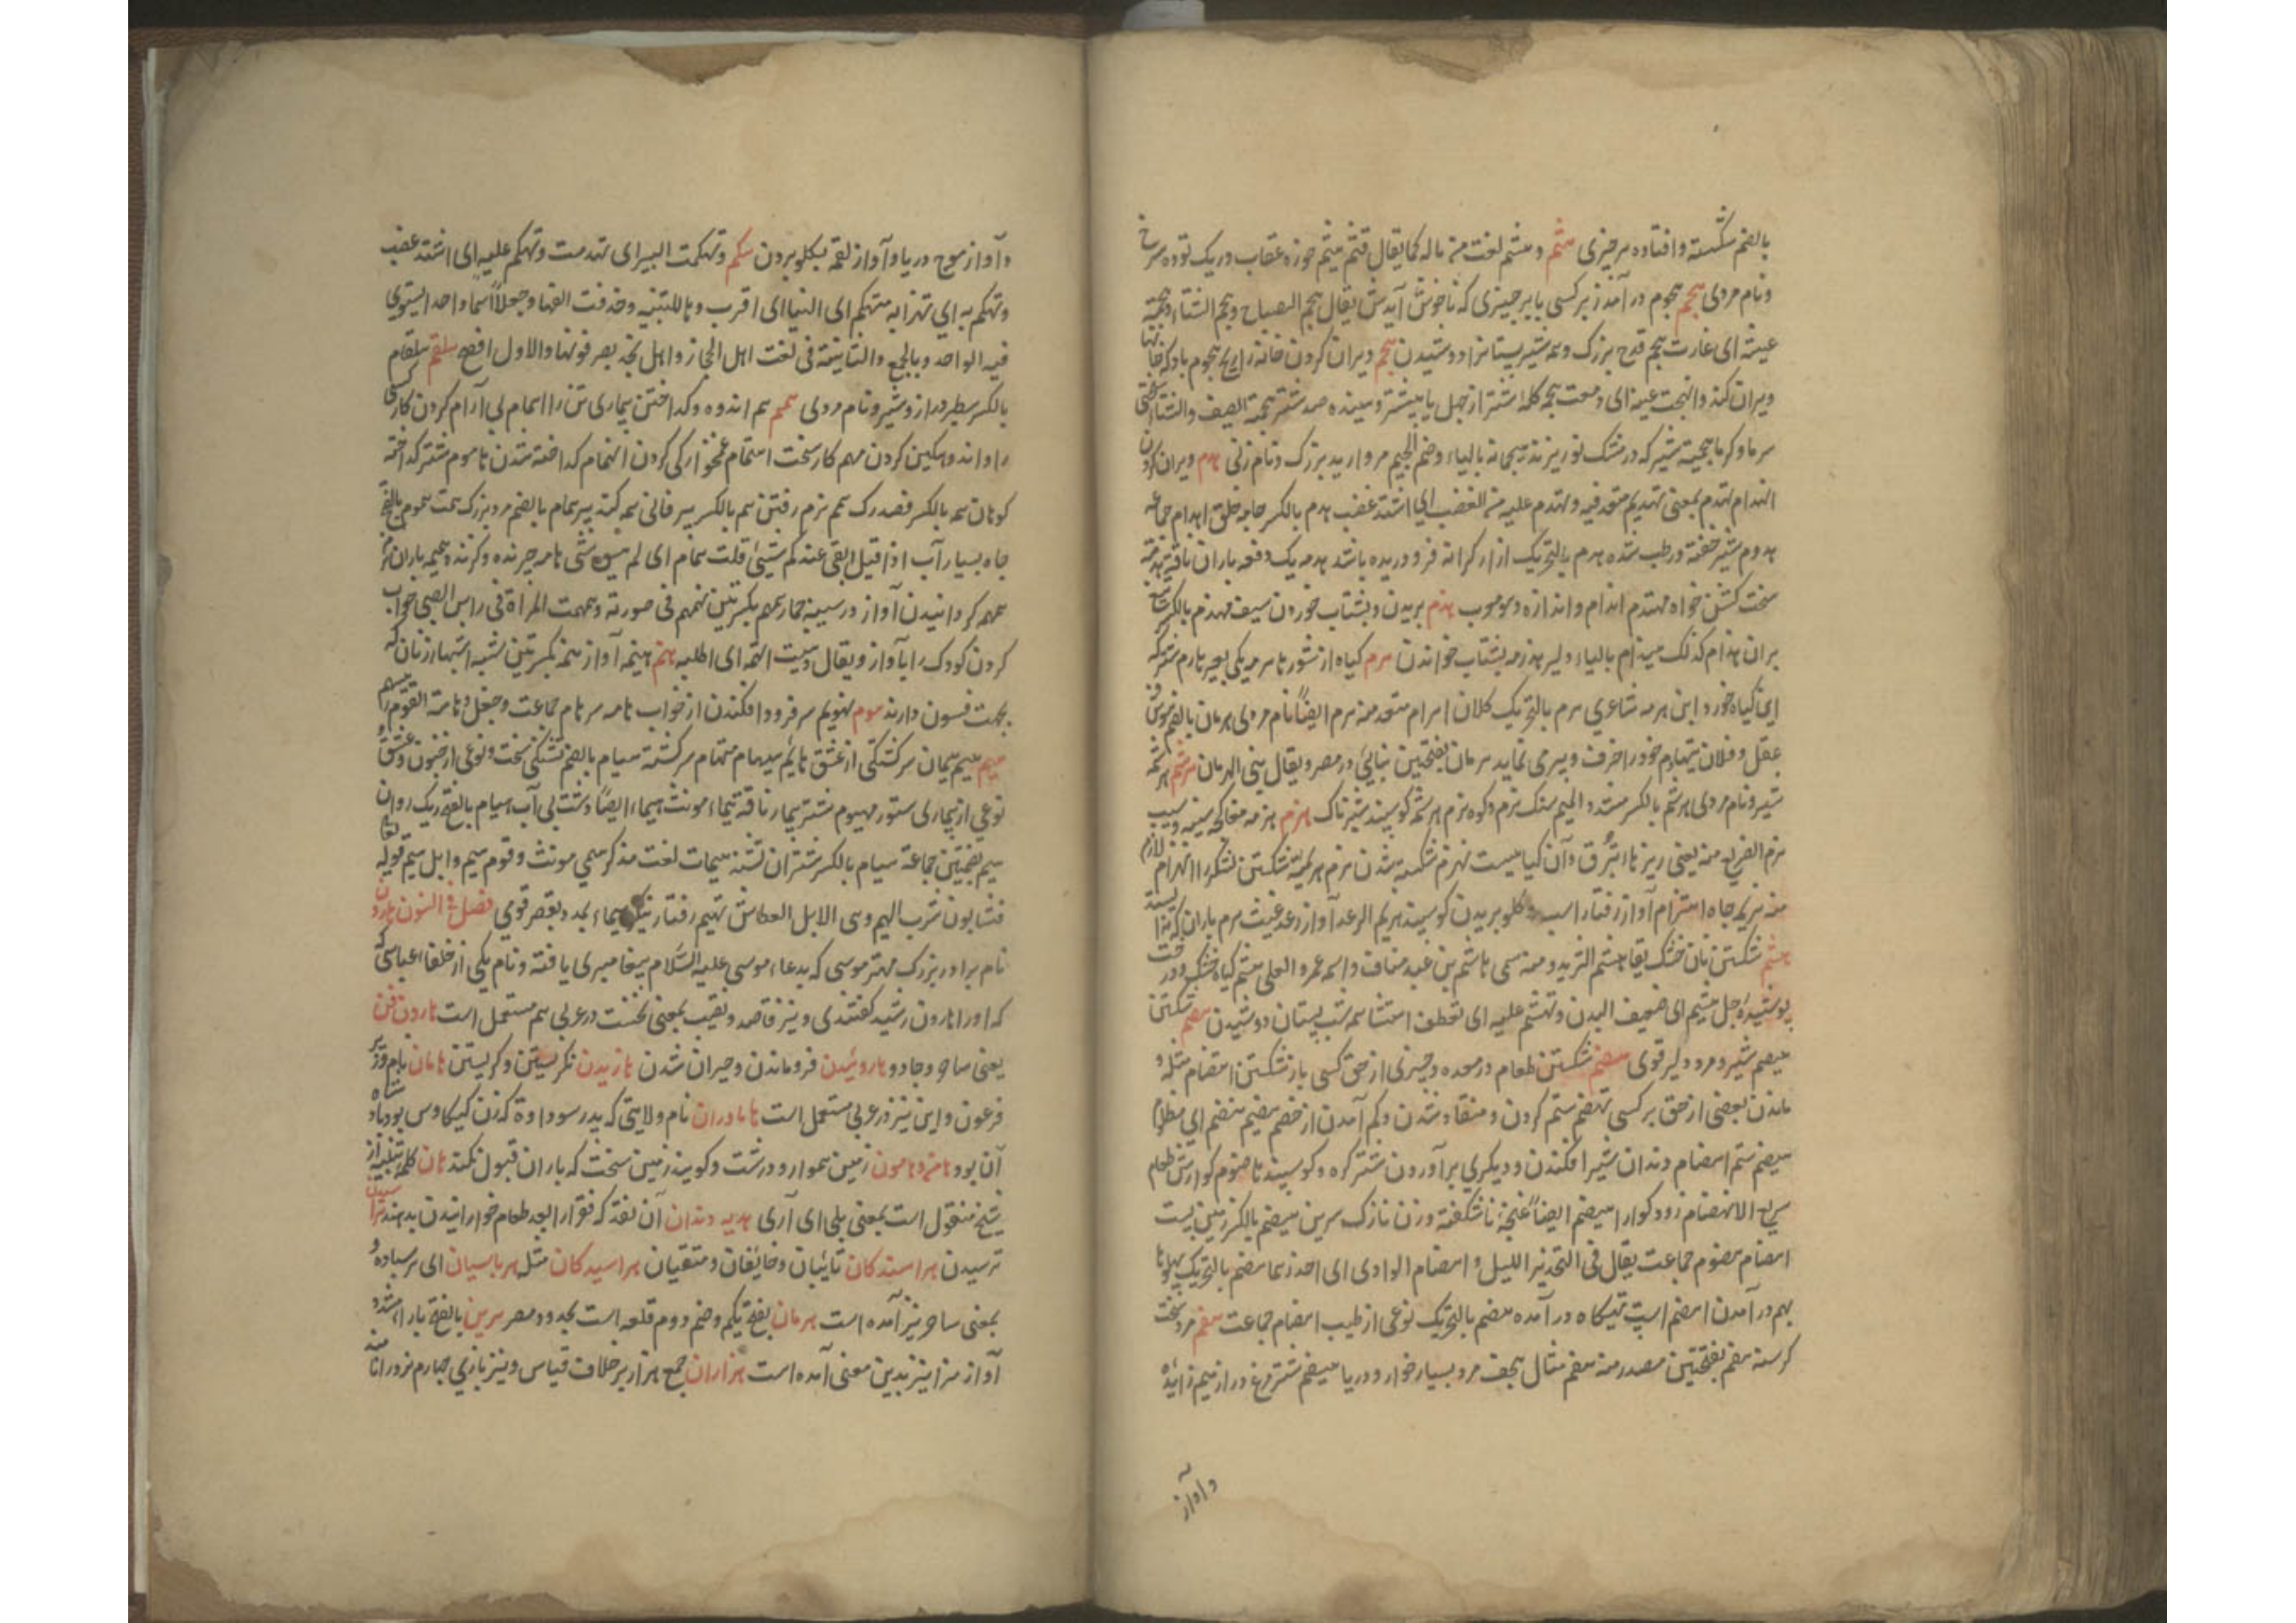 بالضم شکسته و افتاده هر چیزی هثم و هشم لغت منه ماله کما یقال قثم یثم جوزه عقاب و ریک توده سرخ
و نام مردی هجم هجوم در آمدن بر کسی یا بر چیزی که ناخوش آیدش یقال هجم الصباح و هجم الشتاء
ای غارت هجم قدح بزرگ و همه شیر پستانرا دوشیدن هجم ویران کردن خانه را ریح هجوم باد که
ویران کند و انهجمت عینه ای دمعت هجمه گله اشتر از چهل یا بیشتر و هنیده صد شتر هجمة الصیف والشتاء سختی
سرما و گرما هجیمه شیر که در مشک نو ریزند هیجمانه بالیاء وضم الجیم مروارید بزرگ و نام زنی هدم ویران کردن
انهدام تهدم بمعنی تهدیم متعد فیه و تهدم علیه من الغضب ای اشتد غضب هدم بالکسر جامه خلق اهدام جماعه
هدوم شیر خفته و رطب شده هدم بالتحریک از ار کرانه فرو دریده باشد هدمه یک دفعه باران ناقة هدمة
سخت کشن خواه مهتدم اندام و اندازه و موجوب هذم بریدن و بشتاب خوردن سیف مهذم بالکسر
بران هذام کذلک هیذام بالیاء دلیر هذرمه بشتاب خواندن هرم گیاه از شور تا هرمه یکی بعیر هارم شتر که
این گیاه خورد ابن هرمه شاعری هرم بالتحریک کلان اهرام متعد منه هرم ایضاً نام مردی هرمان بالضم
عقل و فلان یتهارم خود را خرف و پیر می نماید هرمان بفتحتین بنائی در مصر و یقال بنی الهرمان هرثم هرثمه
شیر و نام مردی هرشم بالکسر مشدد المیم سنگ نرم و کوه نرم هرشمه گوسپند شیرناک هزم هزمه مغاکچه سینه و سیب
هزم الضریع منه یعنی ریزها شبرق و آن گیاهیست تهزم شکسته شدن هزم هزیمة شکستن لشکر را انهزام لازم
منه هزیم چاه اهتزام آواز رفتار اسب و گلو بریدن گوسپند هزیم الرعد آواز رعد غیث هزم باران که
هشم شکستن نان خشک یقا هشم الثرید و منه سمی هاشم بن عبد مناف و اسمه عمرو العلی هشیم گیاه خشک و درخت
پوسیده رجل هشیم ای ضعیف البدن و تهشم علیه ای تعطف اهتشام همه شیر پستان دوشیدن هصم شکستن
هیصم شیر و مرد دلیر قوی هضم شکستن طعام در معده و چیزی از حق کسی باز شکستن اهتضام مثله و
ماندن بعضی از حق بر کسی تهضم ستم کردن و منقاد شدن و کم آمدن از خصم هضیم متهضم ای مظلوم
هضیمه ستم اهضام دندان شیر افکندن و دیگری بر آوردن شتر کره و گوسپند هاضوم گوارش طعام
سریع الانهضام زود گوارا هضیم ایضاً غنچه ناشکفته و زن نازک سرین هضم بالکسر زمین پست
اهضام هضوم جماعت یقال فی التحذیر اللیل و اهضام الوادی ای احذرها هضم بالتحریک پهلوها
بهم در آمدن اهضم اسپ تهیگاه در آمده هضم بالتحریک نوعی از طیب اهضام جماعت هقم مرد سخت
گرسنه هقم بفتحتین مصدر منه هقم مثال هجف مرد بسیار خوار و دریا هیقم شتر مرغ دراز میم زایده
و آواز
و آواز موج دریا و آواز لقمه بگلو بردن هکم و تهکمت البیر ای تهدمت و تهکم علیه ای اشتد غضب
و تهکم به ای تهزأ به متهکم الینا ای اقرب و ها للتنبیه و حذفت الفها و جعلا اسماً واحد ایستوی
فیه الواحد و الجمع والتانیث فی لغت اهل الحجاز و اهل نجد یصرفونها والاول افصح هلقم هلقام
بالکسر سطبر دراز و شیر و نام مردی همم هم اندوه و گداختن بیماری تن را اهمام بی آرام کردن کار کسی
را و اندوهگین کردن مهم کار سخت اهتمام غمخوارگی کردن انهمام گداخته شدن هاموم شتر گداخته
کوهان همه بالکسر قصد رگ هم نرم رفتن هم بالکسر پیر فانی همه کنده پیر همام بالضم مرد بزرگ همت هموم بالفتح
چاه بسیار آب اذا قیل ابقی عندکم شیئ قلت همهام ای لم یبق شئ هامه چرنده و گزنده همیمه باران نرم
همهمه گردانیدن آواز در سینه حمار همهیم بکسرتین همهم فی صوته و همهمت المراة فی راس الصبی خواب
کردن کودک را بآواز و یقال ذهبت اتهمه ای اطلبه هنم هینمه آواز هنمه بکسرتین شبه اشبهار زنان که
بجهت فسون دارند هوم تهویم سر فرود افکندن از خواب هامه سر هام جماعت و جغد و هامة القوم رئیسهم
هیم هیم هیمان سرگشتگی از عشق هایم هیام متهام سرگشته هیام بالضم تشنگی سخت و نوعی از جنون و عشق و
نوعی از بیماری ستور مهیوم شتر بیمار ناقة هیماء مونث هیماء ایضاً دشت بی آب هیام بالفتح ریگ روان
هیم بضمتین جماعة هیام بالکسر شتران تشنه هیمات لغت مذکر هیمی مونث و قوم هیم و ابل هیم قوله تعالی
فشاربون شرب الهیم وهی الابل العطاش تهیم رفتار نیکو هیماء بمد و بقصر قومی فصل فی النون هارون
نام برادر بزرگ مهتر موسی که بدعاء موسی علیه السلام پیغامبری یافته و نام یکی از خلفاء عباسی که
که او را هارون رشید گفتندی و نیز قاصد و نقیب بمعنی نخست در عربی هم مستعمل است هارون فن
یعنی ساحر و جادو هاروئیدن فرو ماندن و حیران شدن هازیدن نگریستن و گریستن هامان نام وزیر
فرعون و این نیز در عربی مستعمل است هاماوران نام ولایتی که پدر سوداوه که زن کیکاوس بود پادشاه
آن بود هامن و هامون زمین هموار و درشت و گویند زمین سخت که باران قبول نکند هان کلمه تنبیه از
شیخ منقول است بمعنی بلی ای آری هدیه دندان آن نقد که فقرا را بعد طعام خورانیدن بدهند هراسیدن
ترسیدن هراسندگان تائبان و خایفان و متقیان هراسیدگان مثله هرباسیان ای هر سپاده و
بمعنی ساحر نیز آمده است هرمان بفتح یکم و ضم دوم قلعه است بحدود مصر هرین بالفتح بارا مشدد
آواز هرا نیز بدین معنی آمده است هزاران جمع هزار بر خلاف قیاس و نیز بازی چهارم نرد را نا